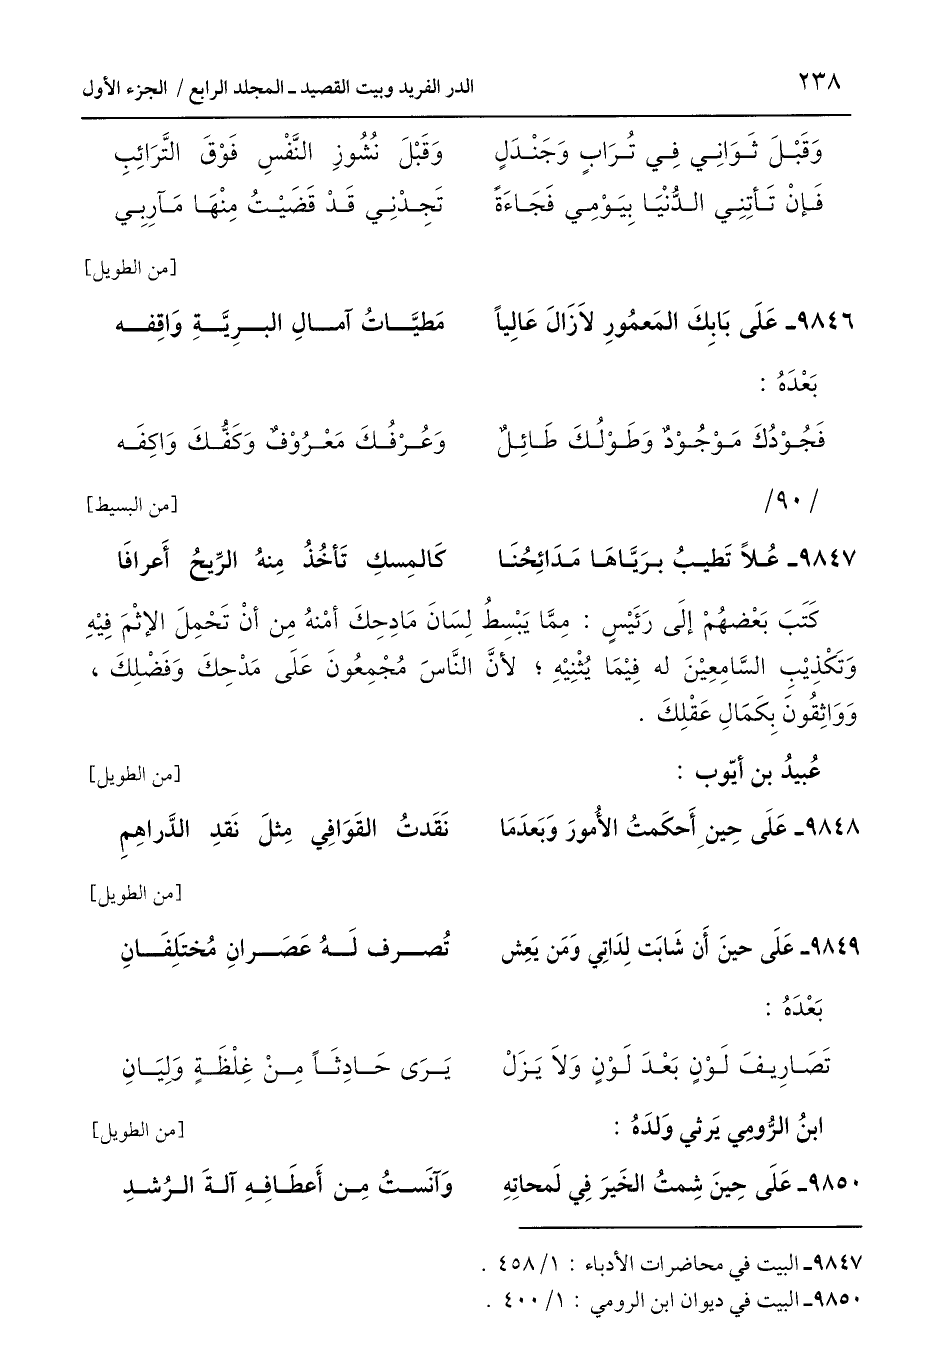 ٢٣٨ الدر الفريد وبيت القصيد ـ المجلد الرابع / الجزء الأول
وَقَبْلَ ثَوَانِي فِي تُرَابٍ وَجَنْدَلٍ وَقَبْلَ نُشُوزِ النَّفْسِ فَوْقَ التَّرَائِبِ
فَإِنْ تَأتِنِي الدُّنْيَا بِيَوْمِي فَجَاءَةً تَجِدْنِي قَدْ قَضَيْتُ مِنْهَا مَآرِبِي
[من الطويل]
٩٨٤٦ـ عَلَى بَابِكَ المَعمُورِ لاَزَالَ عَالِياً مَطيَّاتُ آمالِ البرِيَّةِ وَاقِفه
بَعْدَهُ :
فَجُوْدُكَ مَوْجُوْدٌ وَطَوْلُكَ طَائِلٌ وَعُرْفُكَ مَعْرُوْفٌ وَكَفُّكَ وَاكِفَه
/٩٠/ [من البسيط]
٩٨٤٧ـ عُلاً تَطيبُ بِرَيَّاهَا مَدَائِحُنَا كَالمِسكِ تَأخُذُ مِنهُ الرِّيحُ أَعرافَا
كَتَبَ بَعْضهُمْ إلَى رَئَيْسٍ : مِمَّا يَبْسِطُ لِسَانَ مَادِحِكَ أمْنهُ مِن أنْ تَحْمِلَ الإثْمَ فِيْهِ
وَتَكْذِيْبِ السَّامِعِيْنَ له فِيْمَا يُثْنِيْهِ ؛ لأنَّ النَّاسَ مُجْمِعُونَ عَلَى مَدْحِكَ وَفَضْلِكَ ،
وَوَاثِقُونَ بِكَمَالِ عَقْلِكَ .
عُبيدُ بن أيّوب : [من الطويل]
٩٨٤٨ـ عَلَى حِينِ أَحكَمتُ الأُمورَ وَبَعدَمَا نَقَدتُ القَوَافِي مِثلَ نَقدِ الدَّراهِمِ
[من الطويل]
٩٨٤٩ـ عَلَى حينَ أَن شَابَت لِدَاتِي وَمَن يَعِش تُصرف لَهُ عَصَرانِ مُختَلِفَانِ
بَعْدَهُ :
تَصَارِيفَ لَوْنٍ بَعْدَ لَوْنٍ وَلاَ يَزَلْ يَرَى حَادِثَاً مِنْ غِلْظَةٍ وَلِيَانِ
ابنُ الرُّومِي يَرثي وَلدَهُ : [من الطويل]
٩٨٥٠ـ عَلَى حِينَ شِمتُ الخَيرَ فِي لَمحاتِهِ وَآنَستُ مِن أَعطَافِهِ آلةَ الرُشدِ
٩٨٤٧ـ البيت في محاضرات الأدباء : ١/ ٤٥٨ .
٩٨٥٠ـ البيت في ديوان ابن الرومي : ١/ ٤٠٠ .